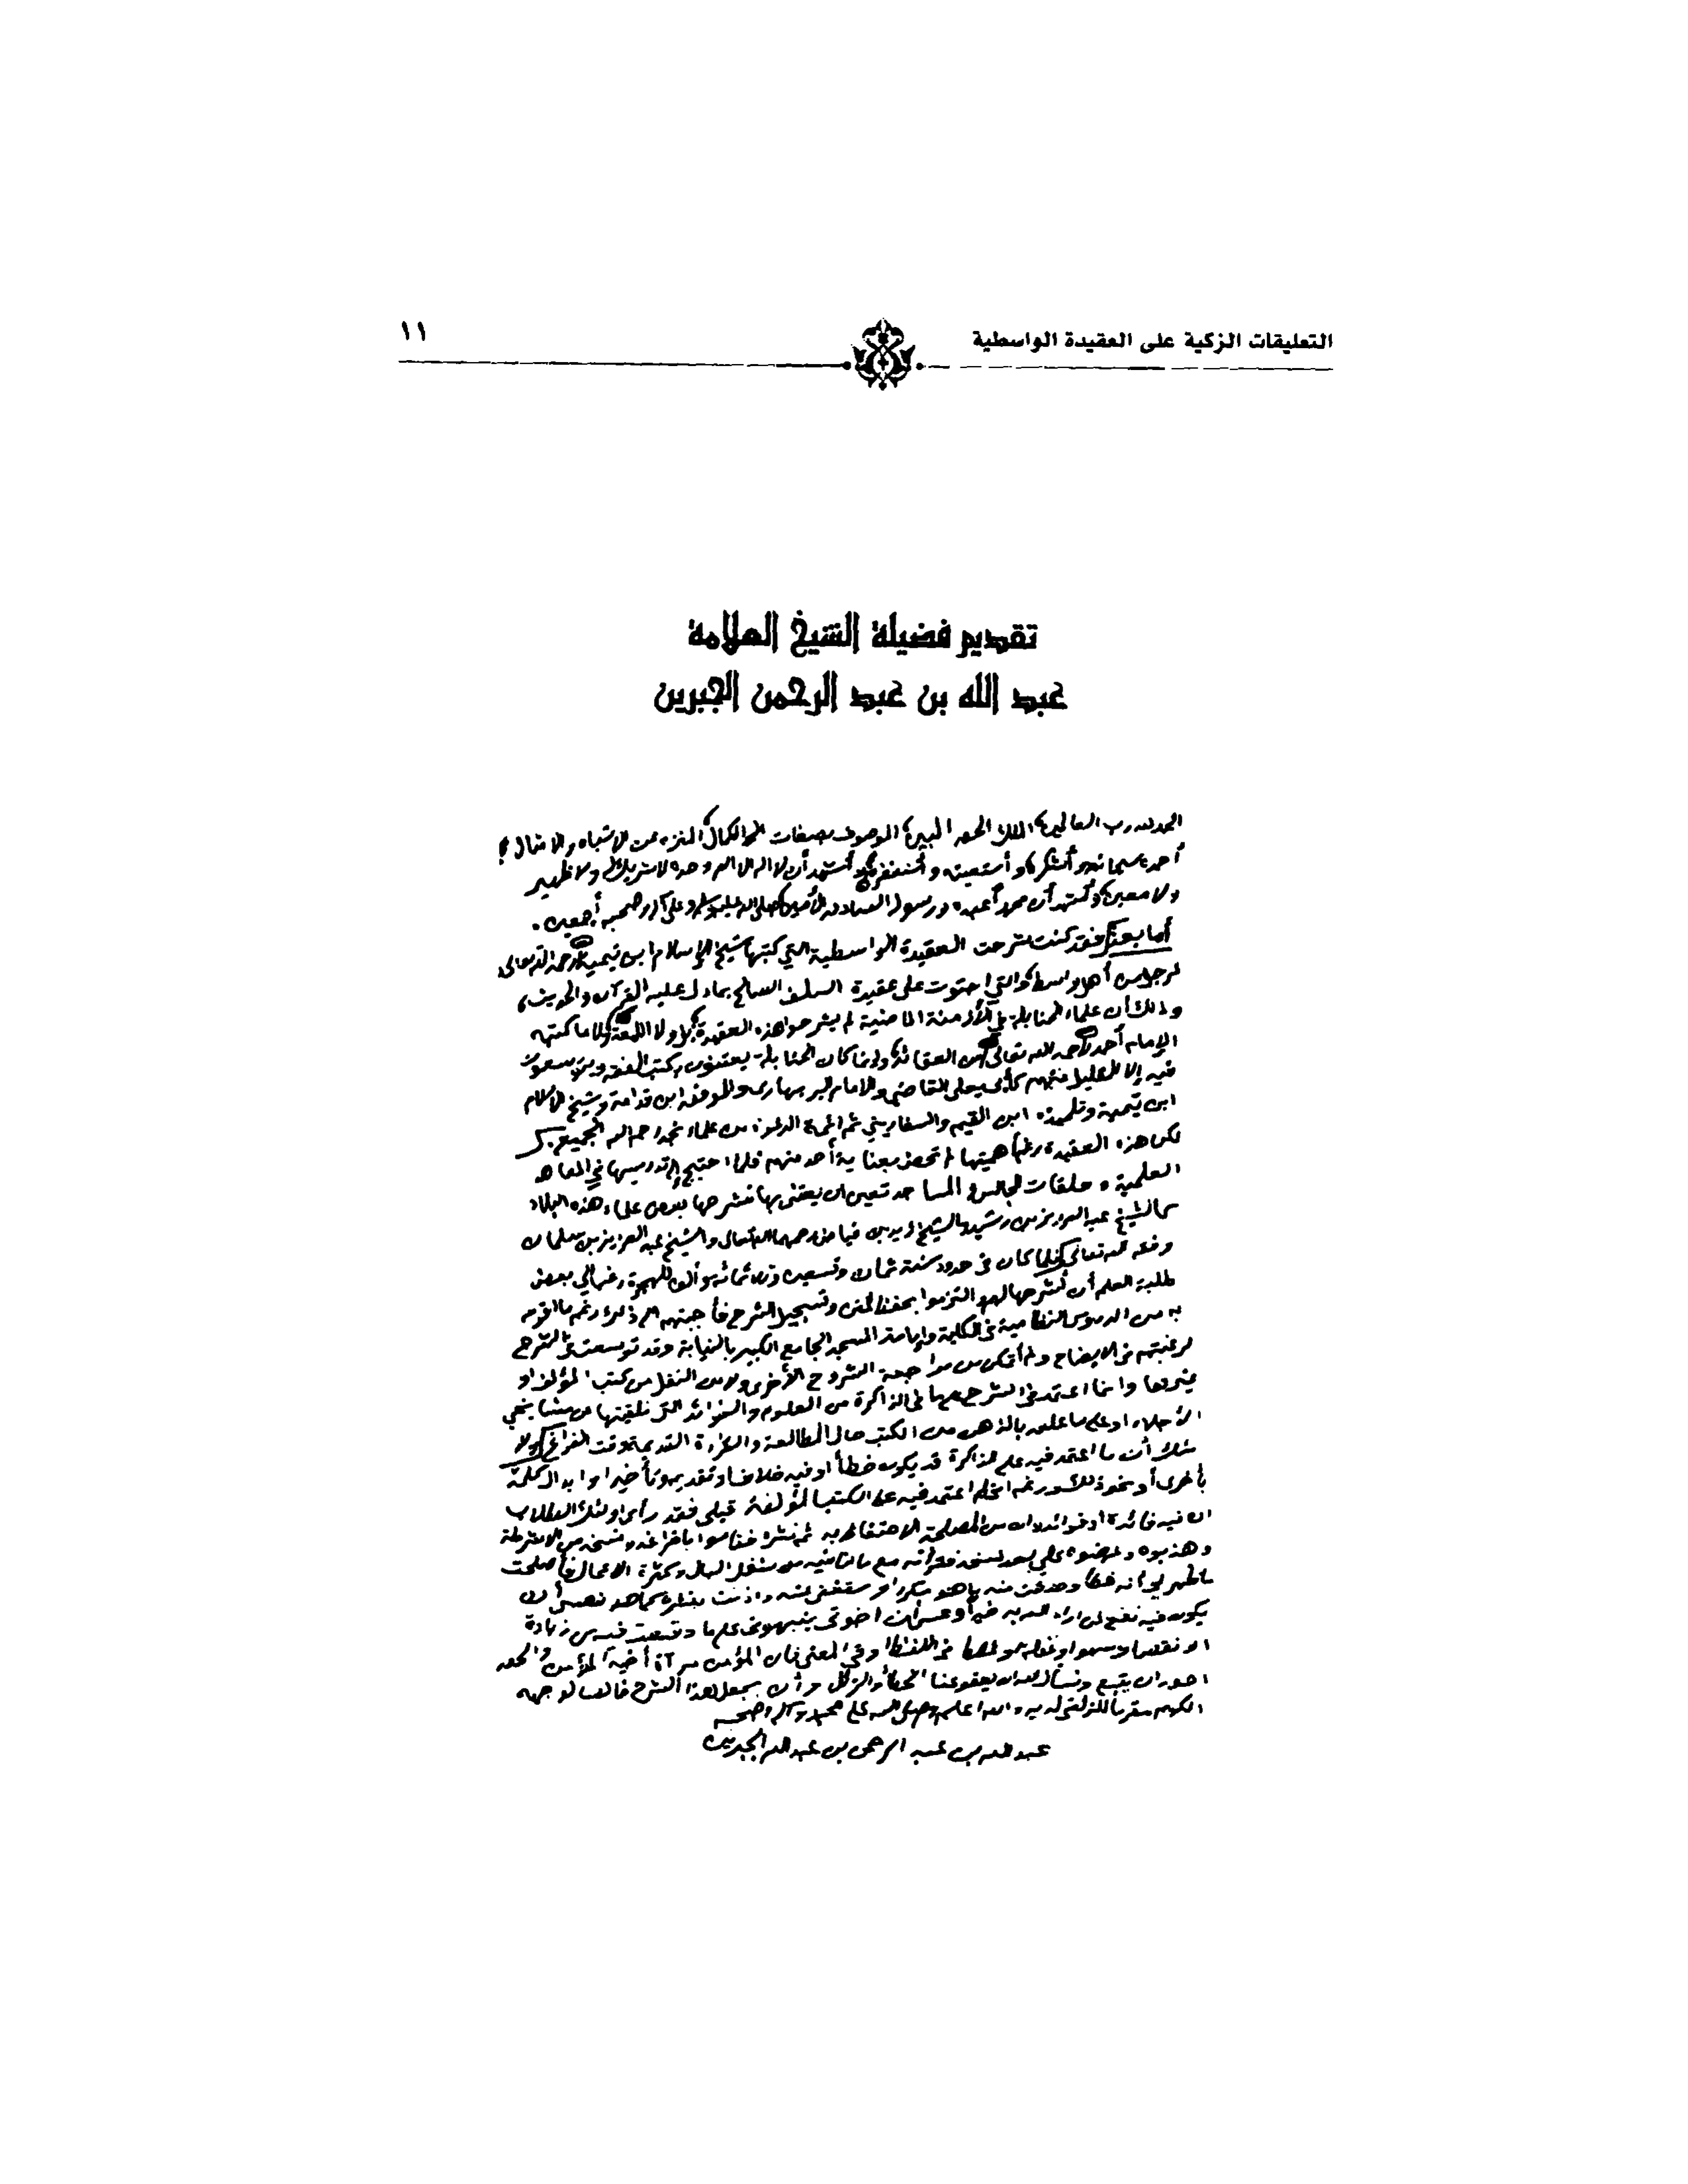 التعليقات الزكية على العقيدة الواسطية
١١
تقديم فضيلة الشيخ العلامة
عبد الله بن عبد الرحمن الجبرين
الحمد لله رب العالمين الملك الحق المبين الموصوف بصفات الكمال المنزه عن الأشباه والأمثال
أحمده سبحانه وأشكره وأستعينه وأستغفره وأشهد أن لا إله إلا الله وحده لا شريك له ولا ظهير
ولا معين وأشهد أن محمدا عبده ورسوله الصادق الأمين صلى الله عليه وسلم وعلى آله وصحبه أجمعين .
أما بعد فقد كنت شرحت العقيدة الواسطية التي كتبها شيخ الإسلام ابن تيمية رحمه الله تعالى
لرجل من أهل واسط والتي احتوت على عقيدة السلف الصالح بما دل عليه القرآن والحديث
وذلك أن علماء الحنابلة في الأزمنة الماضية لم يشرحوا هذه العقيدة بل ولا اللمعة ولا ما كتبه
الإمام أحمد رحمه الله تعالى من العقائد وإنما كان الحنابلة يعتنون بكتب الفقه ويتوسعون
فيه إلا القليل منهم كأبي يعلى القاضي والإمام البربهاري والموفق ابن قدامة وشيخ الإسلام
ابن تيمية وتلميذه ابن القيم والسفاريني ثم أئمة الدعوة من علماء نجد رحم الله الجميع
لكن هذه العقيدة رغم أهميتها لم تحظ بعناية أحد منهم فلما احتيج إلى تدريسها في المعاهد
العلمية وحلقات المجالس في المساجد تعين أن يعتنى بها فشرحها بعض علماء هذه البلاد
كالشيخ عبد العزيز بن رشيد والشيخ زيد بن فياض رحمهما الله تعالى والشيخ عبد العزيز بن سلمان
وفقه الله تعالى فلما كان في حدود سنة ثمان وتسعين وثلاثمائة وألف للهجرة رغب إلي بعض
طلبة العلم أن أشرحها لهم والتزموا بحفظ المتن وتسجيل الشرح فأجبتهم إلى ذلك رغم ما أقوم
به من الدروس النظامية في الكلية وإمامة المسجد الجامع الكبير بالنيابة وقد توسعت في الشرح
لرغبتهم في الإيضاح ولم أتمكن من مراجعة الشروح الأخرى ولا من النقل من كتب المؤلف أو
غيرها وإنما اعتمدت في الشرح على ما في الذاكرة من العلوم والفوائد التي تلقيتها من مشايخي
الأجلاء أو على ما علق بالذهن من الكتب حال المطالعة والقراءة القديمة وقت الفراغ ولا
شك أن ما اعتمد فيه على الذاكرة قد يكون خطأ أو فيه خلاف أو تقديم وتأخير أو إبدال كلمة
بأخرى أو نحو ذلك ورغم اعتمد فيه على الكتب المؤلفة قبلي فقد رأى أولئك الطلاب
أن فيه فائدة أو فوائد وأن من المصلحة الاحتفاظ به ثم نشره فقاموا بإفراغه ونسخه من الأشرطة
وهذبوه وعرضوه علي بعد نسخه فقرأته مع ما أنا فيه من شغل البال وكثرة الأعمال فأصلحت
ما ظهر لي أنه خطأ وحذفت منه ما هو مكرر أو مستغنى عنه وأذنت بنشره كما هو فعسى أن
يكون فيه نفع لمن أراد الله به خيرا وعسى أن إخوتي ينبهوني على ما وقعت فيه من زيادة
أو نقص أو سهو أو غفلة أو خطأ في اللفظ أو في المعنى فإن المؤمن مرآة أخيه المؤمن والحق
أحق أن يتبع ونسأل الله أن يعفو عنا الخطأ والزلل وأن يجعل هذا الشرح خالصا لوجهه
الكريم مقربا للزلفى لديه والله أعلم وصلى الله على محمد وآله وصحبه
عبد الله بن عبد الرحمن بن عبد الله الجبرين